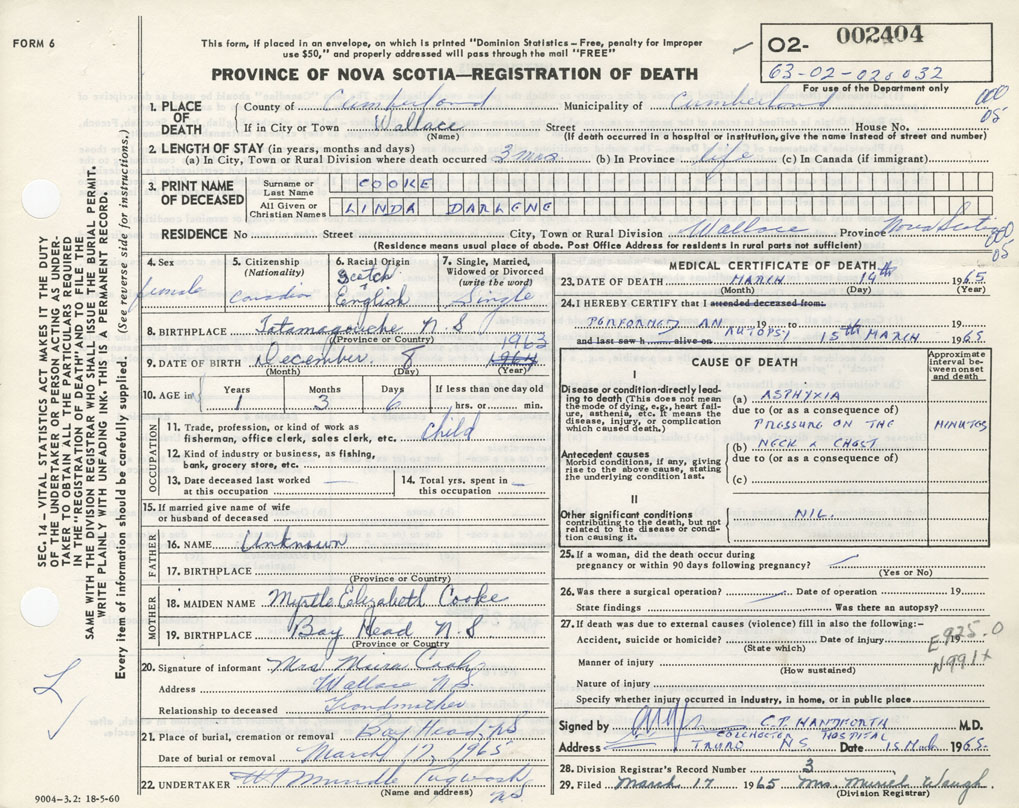 FORM 6
This form, if placed in an envelope, on which is printed "Dominion Statistics – Free, penalty for improper
use $50," and properly addressed will pass through the mail "FREE"
PROVINCE OF NOVA SCOTIA—REGISTRATION OF DEATH
02- 002404
63-02-020032
For use of the Department only
1. PLACE OF DEATH
County of Cumberland Municipality of Cumberland
If in City or Town Wallace Street House No.
(Name) (If death occurred in a hospital or institution, give the name instead of street and number)
2. LENGTH OF STAY (in years, months and days)
(a) In City, Town or Rural Division where death occurred 3 mos (b) In Province life (c) In Canada (if immigrant)
3. PRINT NAME OF DECEASED
Surname or Last Name COOKE
All Given or Christian Names LINDA DARLENE
RESIDENCE No Street City, Town or Rural Division Wallace Province Nova Scotia
(Residence means usual place of abode. Post Office Address for residents in rural parts not sufficient)
4. Sex
female
5. Citizenship
(Nationality)
Canadian
6. Racial Origin
Scotch
English
7. Single, Married,
Widowed or Divorced
(write the word)
Single
8. BIRTHPLACE Tatamagouche N S
(Province or Country)
1963
9. DATE OF BIRTH December 8 1964
(Month) (Day) (Year)
10. AGE in
Years Months Days If less than one day old
1 3 6 hrs. or min.
OCCUPATION
11. Trade, profession, or kind of work as
fisherman, office clerk, sales clerk, etc. Child
12. Kind of industry or business, as fishing,
bank, grocery store, etc.
13. Date deceased last worked
at this occupation
14. Total yrs. spent in
this occupation
15. If married give name of wife
or husband of deceased
FATHER
16. NAME Unknown
17. BIRTHPLACE
(Province or Country)
MOTHER
18. MAIDEN NAME Myrtle Elizabeth Cooke
19. BIRTHPLACE Bay Head N.S
(Province or Country)
20. Signature of informant Mrs Cooke
Address Wallace N.S.
Relationship to deceased Grandmother
21. Place of burial, cremation or removal Bay Head, NS
Date of burial or removal March 17, 1965
22. UNDERTAKER Pugwash,
(Name and address) N.S.
9004-3.2: 18-5-60
MEDICAL CERTIFICATE OF DEATH
23. DATE OF DEATH MARCH 14th 1965
(Month) (Day) (Year)
24. I HEREBY CERTIFY that I attended deceased from:
PERFORMED AN 19 to 19
and last saw h alive on AUTOPSY 15th MARCH 1965.
CAUSE OF DEATH
Approximate
interval be-
tween onset
and death
I
Disease or condition directly lead-
ing to death (This does not mean
the mode of dying, e.g., heart fail-
ure, asthenia, etc. It means the
disease, injury, or complication
which caused death.)
(a) ASPHYXIA
due to (or as a consequence of)
PRESSURE ON THE MINUTES
Antecedent causes
Morbid conditions, if any, giving
rise to the above cause, stating
the underlying condition last.
(b) NECK CHEST
due to (or as a consequence of)
(c)
II
Other significant conditions
contributing to the death, but not
related to the disease or condi-
tion causing it.
NIL.
25. If a woman, did the death occur during
pregnancy or within 90 days following pregnancy?
(Yes or No)
26. Was there a surgical operation? Date of operation 19
State findings Was there an autopsy?
27. If death was due to external causes (violence) fill in also the following:-
Accident, suicide or homicide? Date of injury 19
(State which)
E925.0
N991X
Manner of injury
(How sustained)
Nature of injury
Specify whether injury occurred in industry, in home, or in public place
Signed by C.P. HANDFORTH M.D.
COLCHESTER HOSPITAL
Address TRURO NS Date 15 March 1965.
28. Division Registrar's Record Number 3
29. Filed March 17 1965 Mrs. Muriel Waugh
(Division Registrar)
SEC. 14 – VITAL STATISTICS ACT MAKES IT THE DUTY
OF THE UNDERTAKER OR PERSON ACTING AS UNDER-
TAKER TO OBTAIN ALL THE PARTICULARS REQUIRED
IN THE "REGISTRATION OF DEATH" AND TO FILE THE
SAME WITH THE DIVISION REGISTRAR WHO SHALL ISSUE THE BURIAL PERMIT.
WRITE PLAINLY WITH UNFADING INK. THIS IS A PERMANENT RECORD.
Every item of information should be carefully supplied. (See reverse side for instructions.)